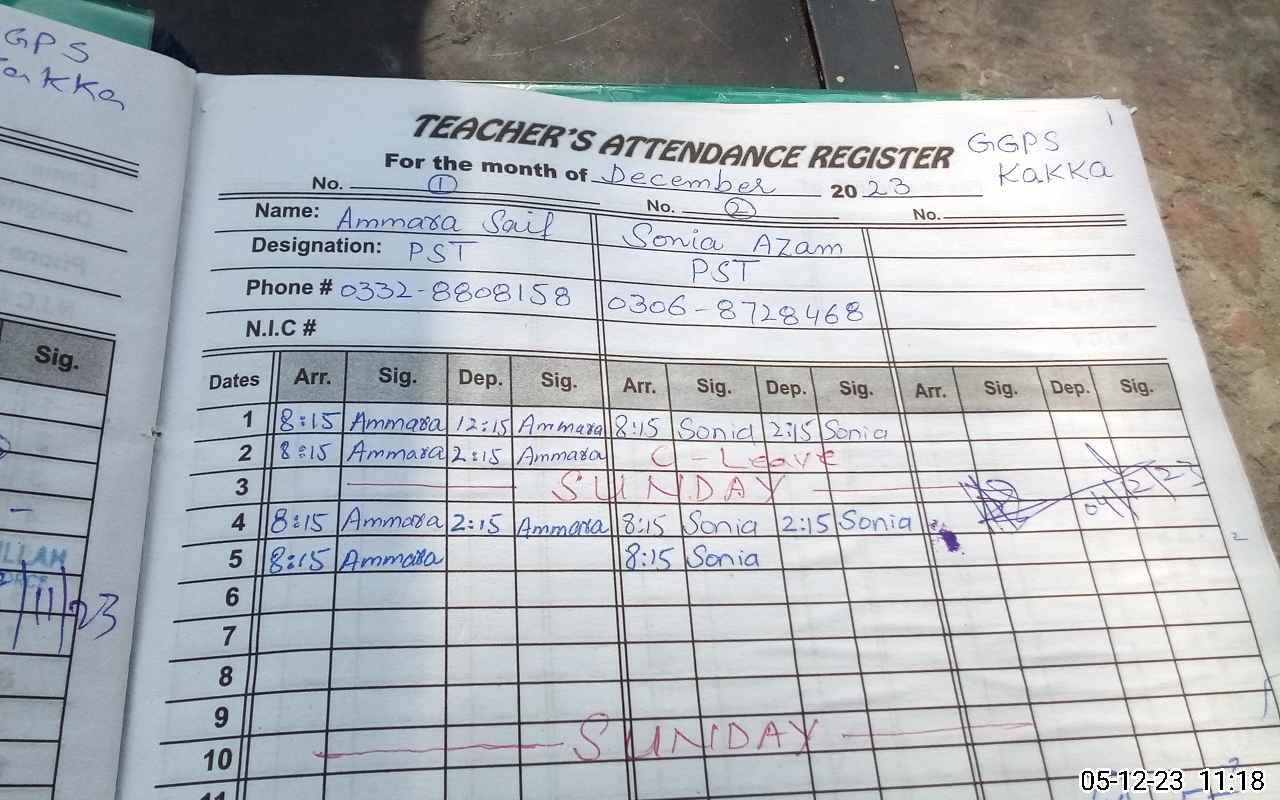 GGPS
Kakka
Sig.
ILLAH
11/23
TEACHER'S ATTENDANCE REGISTER
GGPS
Kakka
For the month of December 2023
No. 1 No. 2 No.
Name: Ammara Saif Sonia Azam
Designation: PST PST
Phone # 0332-8808158 0306-8728468
N.I.C #
Dates Arr. Sig. Dep. Sig. Arr. Sig. Dep. Sig. Arr. Sig. Dep. Sig.
1 8:15 Ammara 12:15 Ammara 8:15 Sonia 2:15 Sonia
2 8:15 Ammara 2:15 Ammara C - Leave
3 SUNDAY
04/12/23
4 8:15 Ammara 2:15 Ammara 8:15 Sonia 2:15 Sonia
5 8:15 Ammara 8:15 Sonia
6
7
8
9
10 SUNDAY
11
05-12-23 11:18